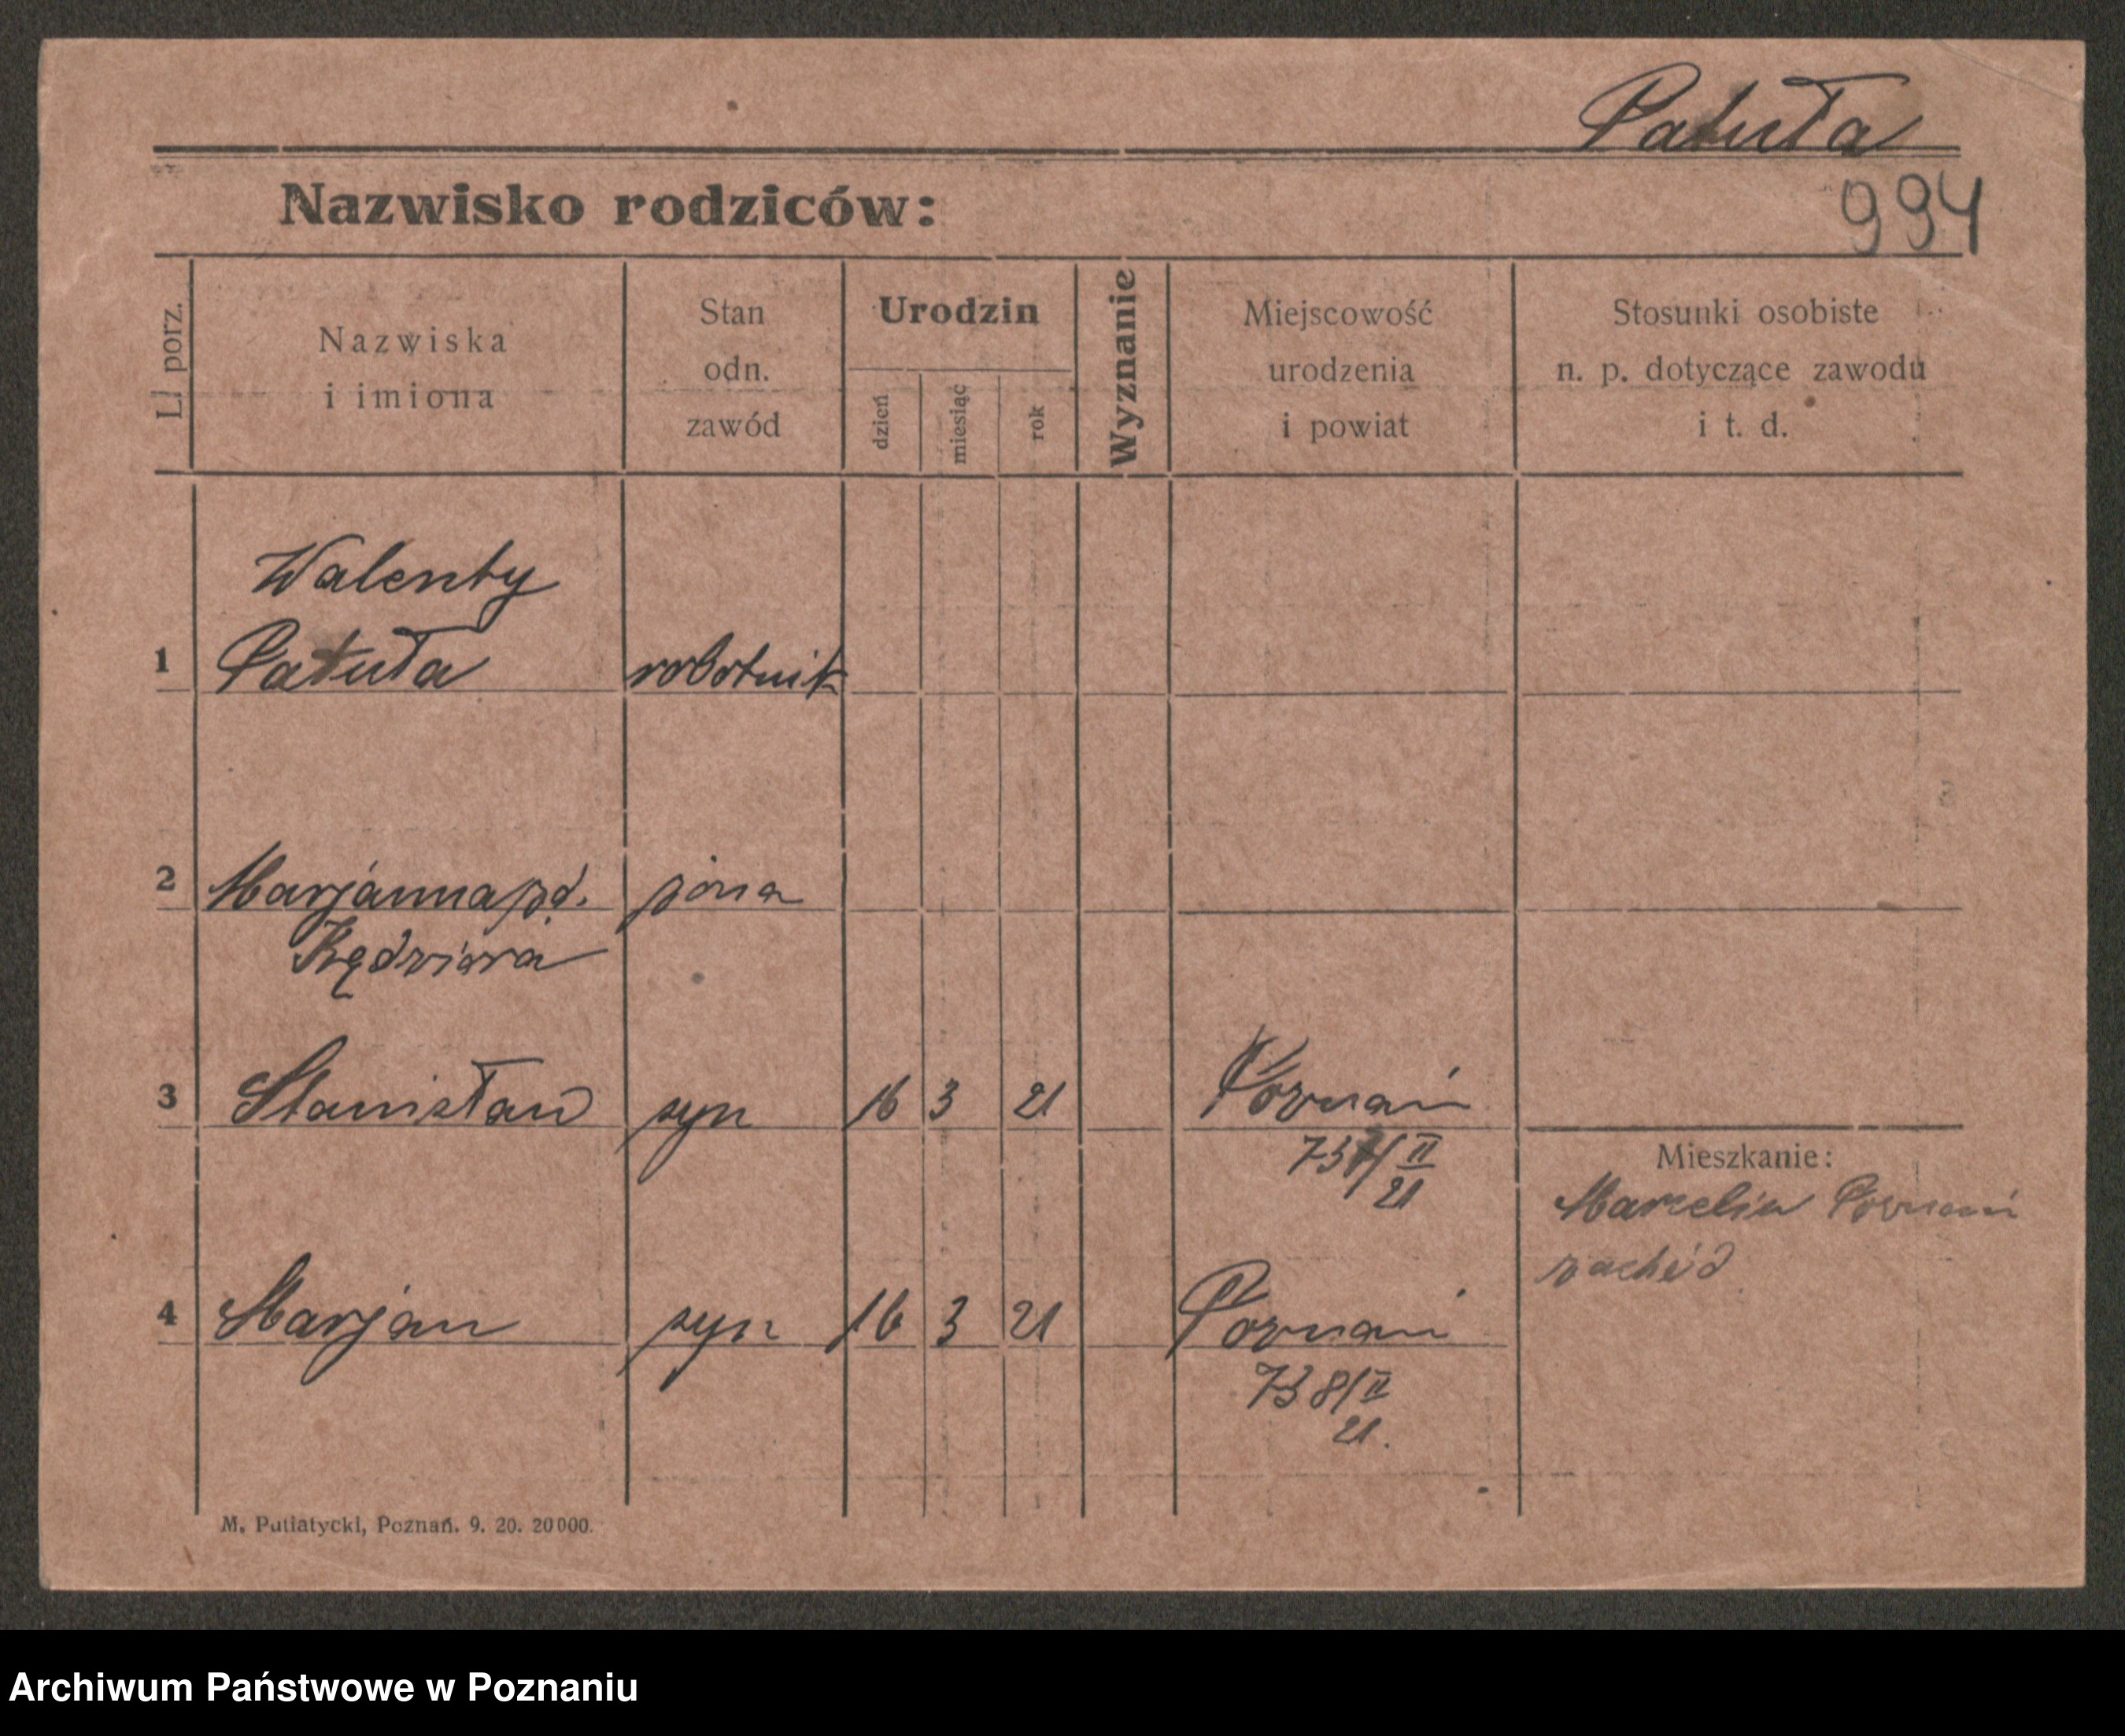 Patuła
Nazwisko rodziców:
994
L. porz.
Nazwiska
i imiona
Stan
odn.
zawód
Urodzin
dzień
miesiąc
rok
Wyznanie
Miejscowość
urodzenia
i powiat
Stosunki osobiste
n. p. dotyczące zawodu
i t. d.
Walenty
1 Patuła robotnik
2 Marjanna zd. żona
Kędziora
3 Stanisław syn 16 3 21 Poznań
737/II
21
Mieszkanie:
Marcelin Poznań
zachód
4 Marjan syn 16 3 21 Poznań
738/II
21.
M. Putiatycki, Poznań. 9. 20. 20000.
Archiwum Państwowe w Poznaniu